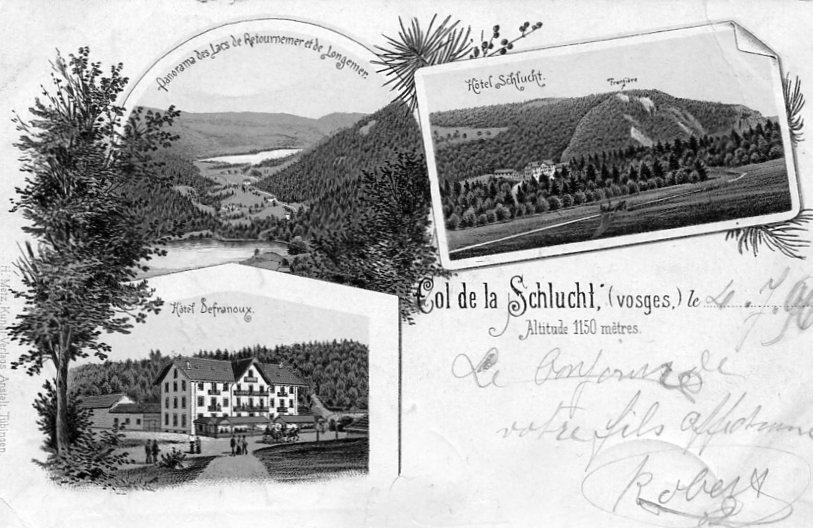 Panorama des Lacs de Retournemer et de Longemer.
Hôtel Schlucht.
Frontière
Hôtel Defranoux.
Col de la Schlucht, (vosges,) le 4.7.96
Altitude 1150 mètres.
Le bonjour de
votre fils affectionné
Robert
H. Metz, Kunst-Verlags-Anstalt, Tübingen